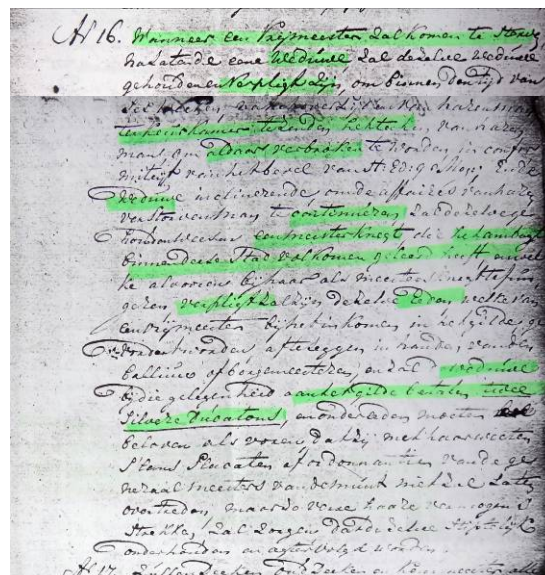 Art 16. Wanneer een Vrijmeester zal komen te sterven
nalatende eene weduwe zal dezelve weduwe
gehouden en verpligt zijn, om binnen den tijd van
ses weeken van haren man
te kenkamer te zenden het teeken, van haren
man om aldaar verbroken te worden in confor
miteijt van het bevel van H: Ed: Mog: Ende
weduwe inclineerende om de affaires van hare
verstorven man te continueren zal dezelve ge
houden weesen een meester knegt die het ambagt
binnen deese Stad volkomen geleerd heeft
te alvorens bij haar als meester knegt te fun
geren, verpligt zal zijn dezelve Eeden welke van
een vrijmeester bij het inkomen in het gilde ge
vordert worden, afteleggen in handen van den
Balliuw of borgemeesteren, en zal de weduwe
bij die gelegenheid aan het gilde betalen twee
Silvere ducatons, en onder eeden moeten
beloven als voren, dat zij met haar weeten
's Lans Placaten of ordonnantien van de ge
neraal meesters van de munt niet zal laten
overtreden, maar de veue haare vermogens
strekke, zal zorgen dat dezelve stiptelijk
onderhouden en agtervolgt worden.
Art 17. Zullen Deeken, oud Deeken en keurmeesters alle